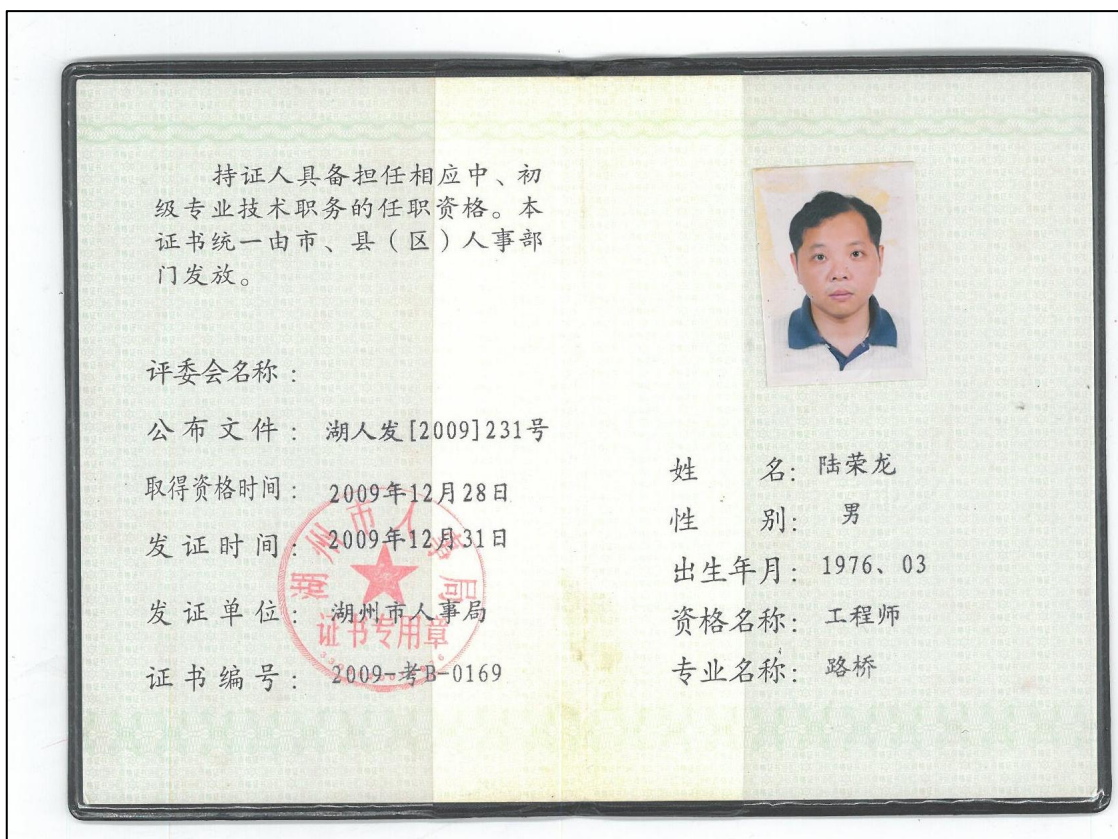 持证人具备担任相应中、初
级专业技术职务的任职资格。本
证书统一由市、县（区）人事部
门发放。
评委会名称：
公布文件： 湖人发[2009]231号
取得资格时间： 2009年12月28日
发证时间： 2009年12月31日
发证单位： 湖州市人事局
证书编号： 2009-考B-0169
湖州市人事局
证书专用章
姓 名： 陆荣龙
性 别： 男
出生年月： 1976、03
资格名称： 工程师
专业名称： 路桥